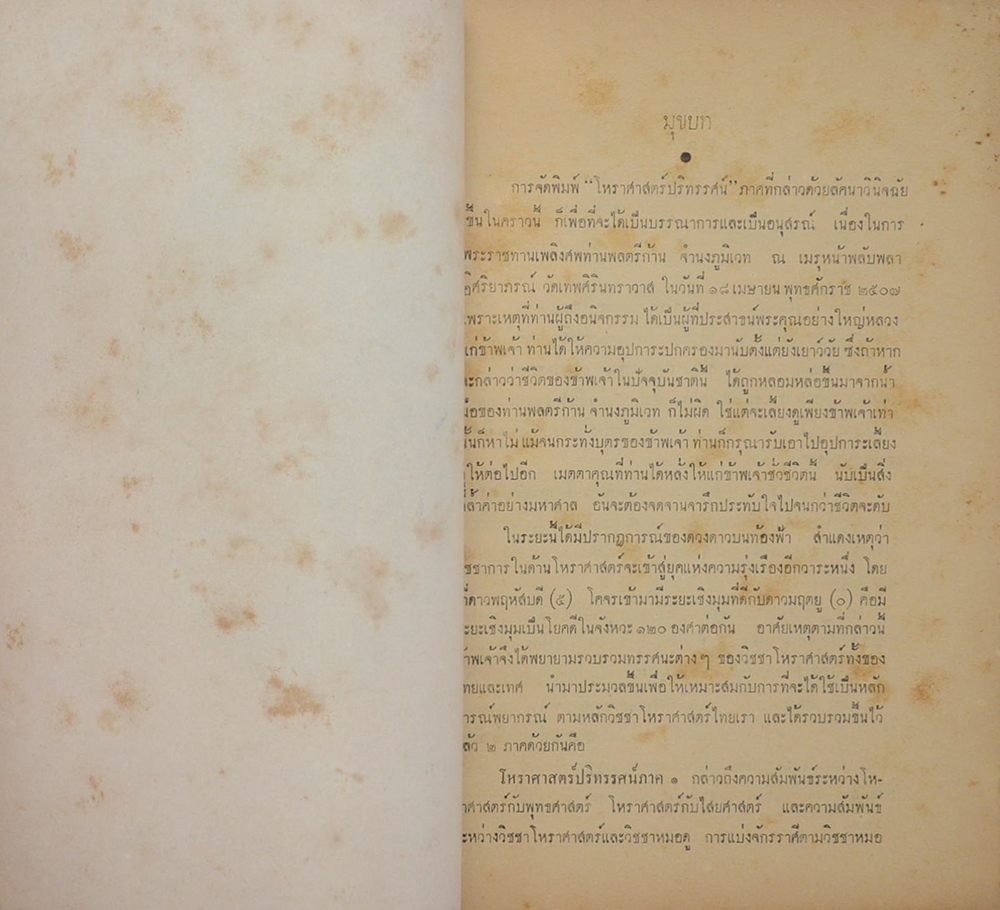 มุขบท
การจัดพิมพ์ “โหราศาสตร์ปริทรรศน์” ภาคที่กล่าวด้วยลัคนาวินิจฉัย
ขึ้นในคราวนี้ ก็เพื่อที่จะได้เป็นบรรณาการและเป็นอนุสรณ์ เนื่องในการ
พระราชทานเพลิงศพท่านพลตรีก้าน จำนงภูมิเวท ณ เมรุหน้าพลับพลา
อิศริยาภรณ์ วัดเทพศิรินทราวาส ในวันที่ ๑๘ เมษายน พุทธศักราช ๒๕๐๗
เพราะเหตุที่ท่านผู้ถึงอนิจกรรม ได้เป็นผู้ที่ประสาธน์พระคุณอย่างใหญ่หลวง
แก่ข้าพเจ้า ท่านได้ให้ความอุปการะปกครองมานับตั้งแต่ยังเยาว์วัย ซึ่งถ้าหาก
จะกล่าวว่าชีวิตของข้าพเจ้าในปัจจุบันชาตินี้ ได้ถูกหลอมหล่อขึ้นมาจากน้ำ
มือของท่านพลตรีก้าน จำนงภูมิเวท ก็ไม่ผิด ใช่แต่จะเลี้ยงดูเพียงข้าพเจ้าเท่า
นั้นก็หาไม่ แม้จนกระทั่งบุตรของข้าพเจ้า ท่านก็กรุณารับเอาไปอุปการะเลี้ยง
ให้ต่อไปอีก เมตตาคุณที่ท่านได้หลั่งให้แก่ข้าพเจ้าชั่วชีวิตนี้ นับเป็นสิ่ง
ที่ล้ำค่าอย่างมหาศาล อันจะต้องจดจานจารึกประทับใจไปจนกว่าชีวิตจะดับ
ในระยะนี้ได้มีปรากฏการณ์ของดวงดาวบนท้องฟ้า สำแดงเหตุว่า
วิชชาการในด้านโหราศาสตร์จะเข้าสู่ยุคแห่งความรุ่งเรืองอีกวาระหนึ่ง โดย
ที่ดาวพฤหัสบดี (๕) โคจรเข้ามามีระยะเชิงมุมที่ดีกับดาวมฤตยู (๐) คือมี
ระยะเชิงมุมเป็นโยคดีในจังหวะ ๑๒๐ องศาต่อกัน อาศัยเหตุตามที่กล่าวนี้
ข้าพเจ้าจึงได้พยายามรวบรวมทรรศนะต่างๆ ของวิชชาโหราศาสตร์ทั้งของ
ไทยและเทศ นำมาประมวลขึ้นเพื่อให้เหมาะสมกับการที่จะได้ใช้เป็นหลัก
การณ์พยากรณ์ ตามหลักวิชชาโหราศาสตร์ไทยเรา และได้รวบรวมขึ้นไว้
แล้ว ๒ ภาคด้วยกันคือ
โหราศาสตร์ปริทรรศน์ภาค ๑ กล่าวถึงความสัมพันธ์ระหว่างโห-
ราศาสตร์กับพุทธศาสตร์ โหราศาสตร์กับไสยศาสตร์ และความสัมพันธ์
ระหว่างวิชชาโหราศาสตร์และวิชชาหมอดู การแบ่งจักรราศีตามวิชชาหมอ